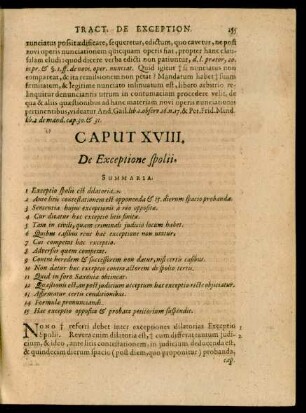 TRACT. DE EXCEPTION.
nunciatus possit ædificare, sequeretur, edictum, quo cavetur, ne post
novi operis nunciationem quicquam operis fiat, propter hanc clausulam
eludi: quod dicere verba edicti non patiuntur, d. l. prætor,
de nov. oper. nunciat. Quid igitur † si nuncians non
compareat, & ita remissionem non petat? Mandatum habet † suum
terminum, & legitimo nunciato insinuatum est, libero arbitrio relinquitur
denunciantis utrum in contumaciam procedere velit, de
qua & aliis quæstionibus ad hanc materiam novi operis nunciationis
pertinentibus, videatur And. Gail. lib. 1. observ. 16. n. 17 & Pet. Frid. Mand.
lib. 2 de mand. cap. 30. & 31.
CAPUT XVIII.
De Exceptione spolii.
SUMMARIA.
1 Exceptio spolii est dilatoria.
2 Ante litis contestationem est opponenda & 15. dierum spacio probanda.
3 Sententia hujus exceptionis à reo opposita.
4 Cur dicatur hac exceptio litis finita.
5 Tam in civili, quam criminali judicio locum habet.
6 Quibus casibus reus hac exceptione non utitur.
7 Cui competat hac exceptio.
8 Adversus quem competat.
9 Contra heredem & successorem non datur, nisi certis casibus.
10 Non datur hac exceptio contra actorem de spolio tertii.
11 Quid in foro Saxonia obtineat.
12 Quæstionis est, an post judicium acceptum hac exceptio recte objiciatur.
13 Affirmatur certis conditionibus.
14 Formula pronunciandi.
15 Hac exceptio opposita & probata petitorium suspendit.
NONO † referri debet inter exceptiones dilatorias Exceptio
spolii. Revera enim dilatoria est, † differt quidem tantum
judicium, & ideo, ante litis contestationem, in judicium deducenda est,
& quindecim dierum spacio (post diem, quo proponitur) probanda,
cap.